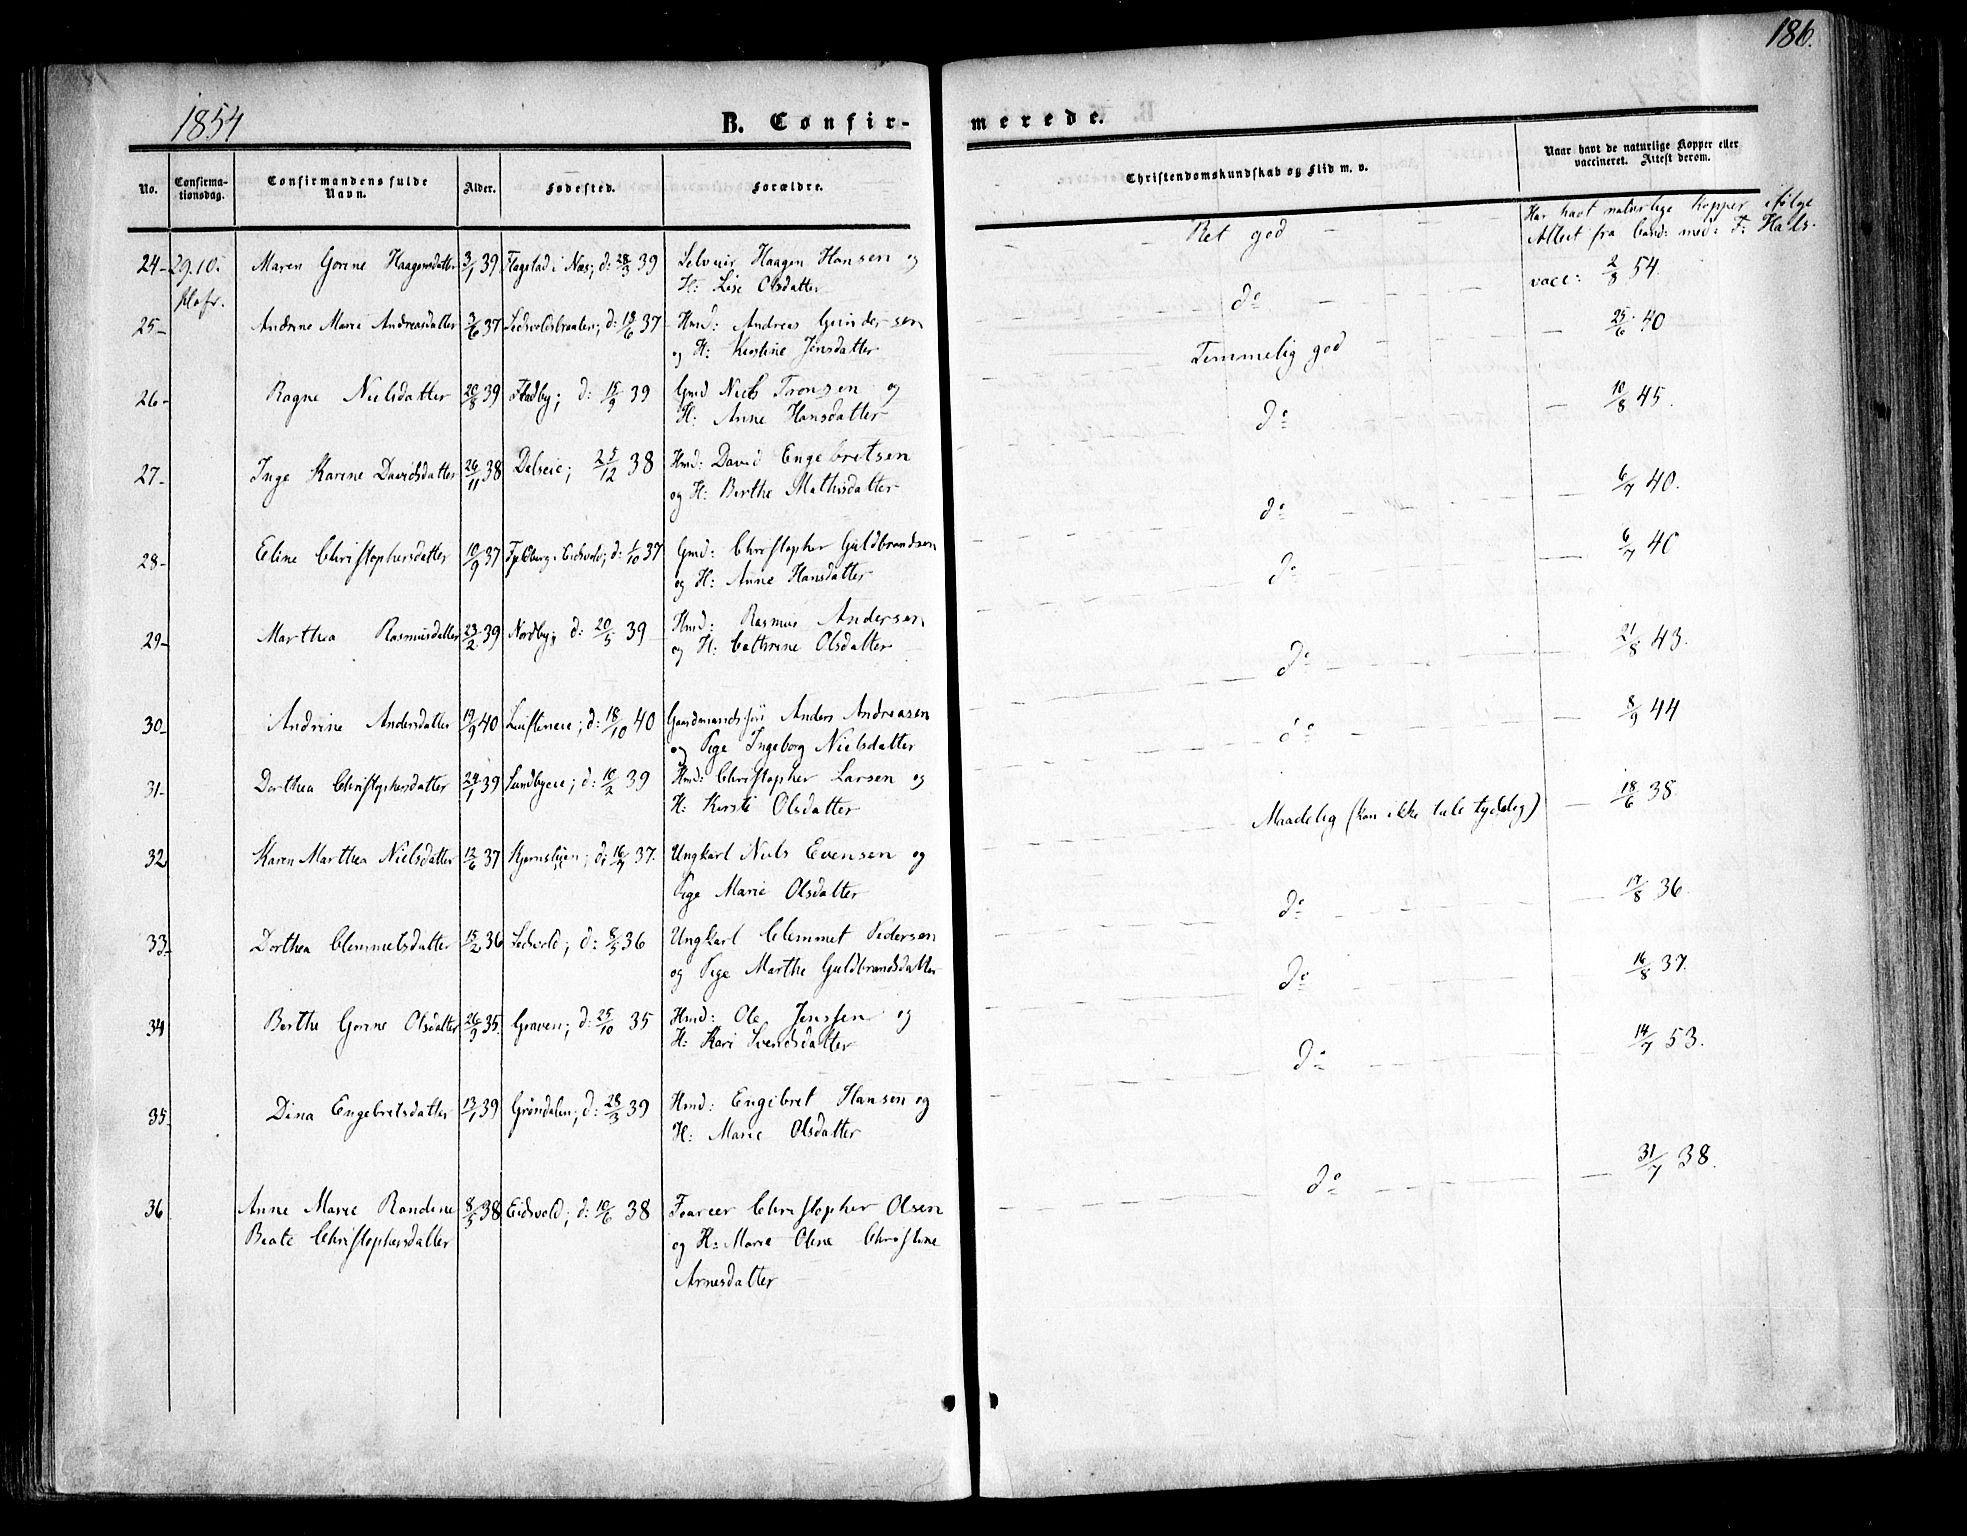 186.
1854
B. Confir-
merede.
No.
Confirma-
tionsdag.
Confirmandens fulde
Navn.
Alder.
Fødested.
Forældre.
Christendomskundskab og Flid m. v.
Naar havt de naturlige Kopper eller
vaccineret. Attest derom.
24 - 29.10. Maren Gorine Haagensdatter 3/1 39 Flagstad i Næs; d: 28/3 39 Selveier Haagen Hansen og
H: Lise Olsdatter
Ret god
Har havt naturlige Kopper ifølge
Attest fra Cand: med: F: Hals.
25 - Andrine Marie Andreasdatter 3/6 37 d: 18/6 37 Hmd: Andreas Gundersen
og H: Kirstine Jensdatter
do
vacc: 2/8 54.
26 - Ragne Nielsdatter 20/8 39 d: 15/9 39 Gmd Niels Tronsen og
H: Anne Hansdatter
Temmelig god
25/6 40
27 - Inge Karine Davidsdatter 26/11 38 Dalseie; 25/12 38 Hmd: David Engebretsen
og H: Berthe Mathisdatter
do
10/8 45.
28 - Eline Christophersdatter 10/9 37 Eidsvold; d: 1/10 37 Gmd: Christopher Guldbrandsen
og H: Anne Hansdatter
do
6/7 40.
29 - Marthea Rasmusdatter 23/2 39 Nordby; d: 20/5 39 Hmd: Rasmus Andersen
og H: Cathrine Olsdatter
do
6/7 40
30 - Andrine Andersdatter 19/9 40 d: 18/10 40 Gaardmandssøn Anders Andreasen
og Pige Ingeborg Nielsdatter
do
21/8 43.
31 - Dorthea Christophersdatter 24/1 39 Sundbyeie; d: 10/2 39 Hmd: Christopher Larsen og
H: Kirsti Olsdatter
do
8/9 44
32 Karen Marthea Nielsdatter 12/6 37 d: 16/7 37. Ungkarl Niels Evensen og
Pige Marie Olsdatter
Maadelig (kan ikke tale tydelig)
18/6 38.
33 - Dorthea Clemmetsdatter 15/2 36 d: 8/5 36 Ungkarl Clemmet Pedersen
og Pige Marthe Guldbrandsdatter
do
17/8 36.
34 Berthe Gorine Olsdatter 26/9 35. Graven; d: 25/10 35 Hmd: Ole Jenssen og
H: Kari Svendsdatter
do
16/8 37.
35 - Dina Engebretsdatter 13/1 39 Grøndalen; d: 28/3 39 Hmd: Engebret Hansen og
H: Marie Olsdatter
do
14/7 53.
36 Anne Marie Randine 8/5 38 Eidsvold; d: 10/6 38 Foureer Christopher Olsen
Beate Christophersdatter og H: Marie Oline Christine
Arnesdatter
do
31/7 38.